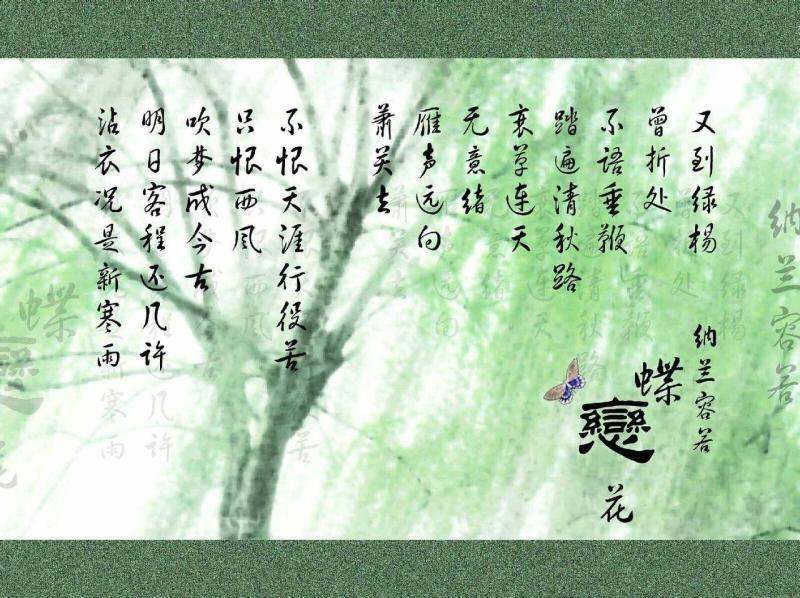 又到绿杨
曾折处
不语垂鞭
踏遍清秋路
衰草连天
无意绪
雁声远向
萧关去
不恨天涯行役苦
只恨西风
吹梦成今古
明日客程还几许
沾衣况是新寒雨
纳兰容若
蝶戀花